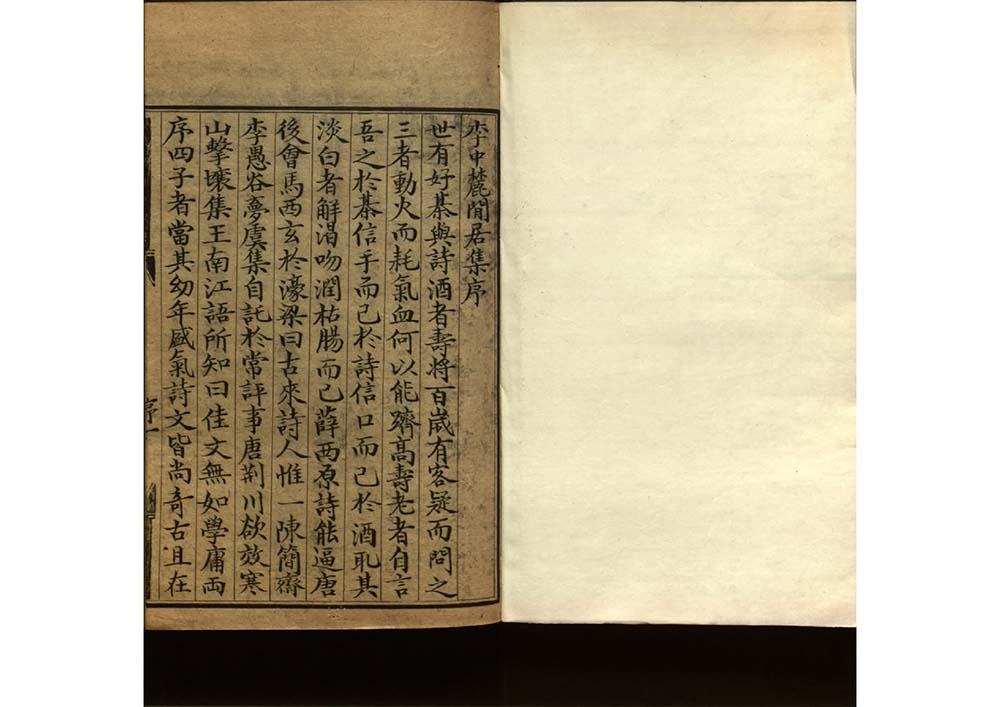 李中麓閒居集序
世有好棊與詩酒者壽将百歲有客疑而問之
三者動火而耗氣血何以能躋高壽老者自言
吾之於棊信手而已於詩信口而已於酒耴其
淡白者解渴吻潤枯腸而已薛西原詩能逼唐
後會馬西玄於濠梁曰古來詩人惟一陳簡齋
李愚谷夢虞集自託於常評事唐荆川欲效寒
山擊壤集王南江語所知曰佳文無如學庸兩
序四子者當其幼年盛氣詩文皆尚奇古且在
序一